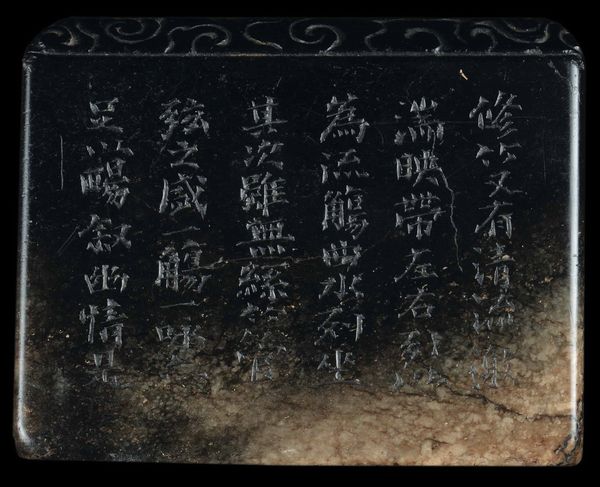 修竹又有清流激
湍映帶左右引以
為流觴曲水列坐
其次雖無絲竹管
弦之盛一觴一咏亦
足以暢叙幽情是